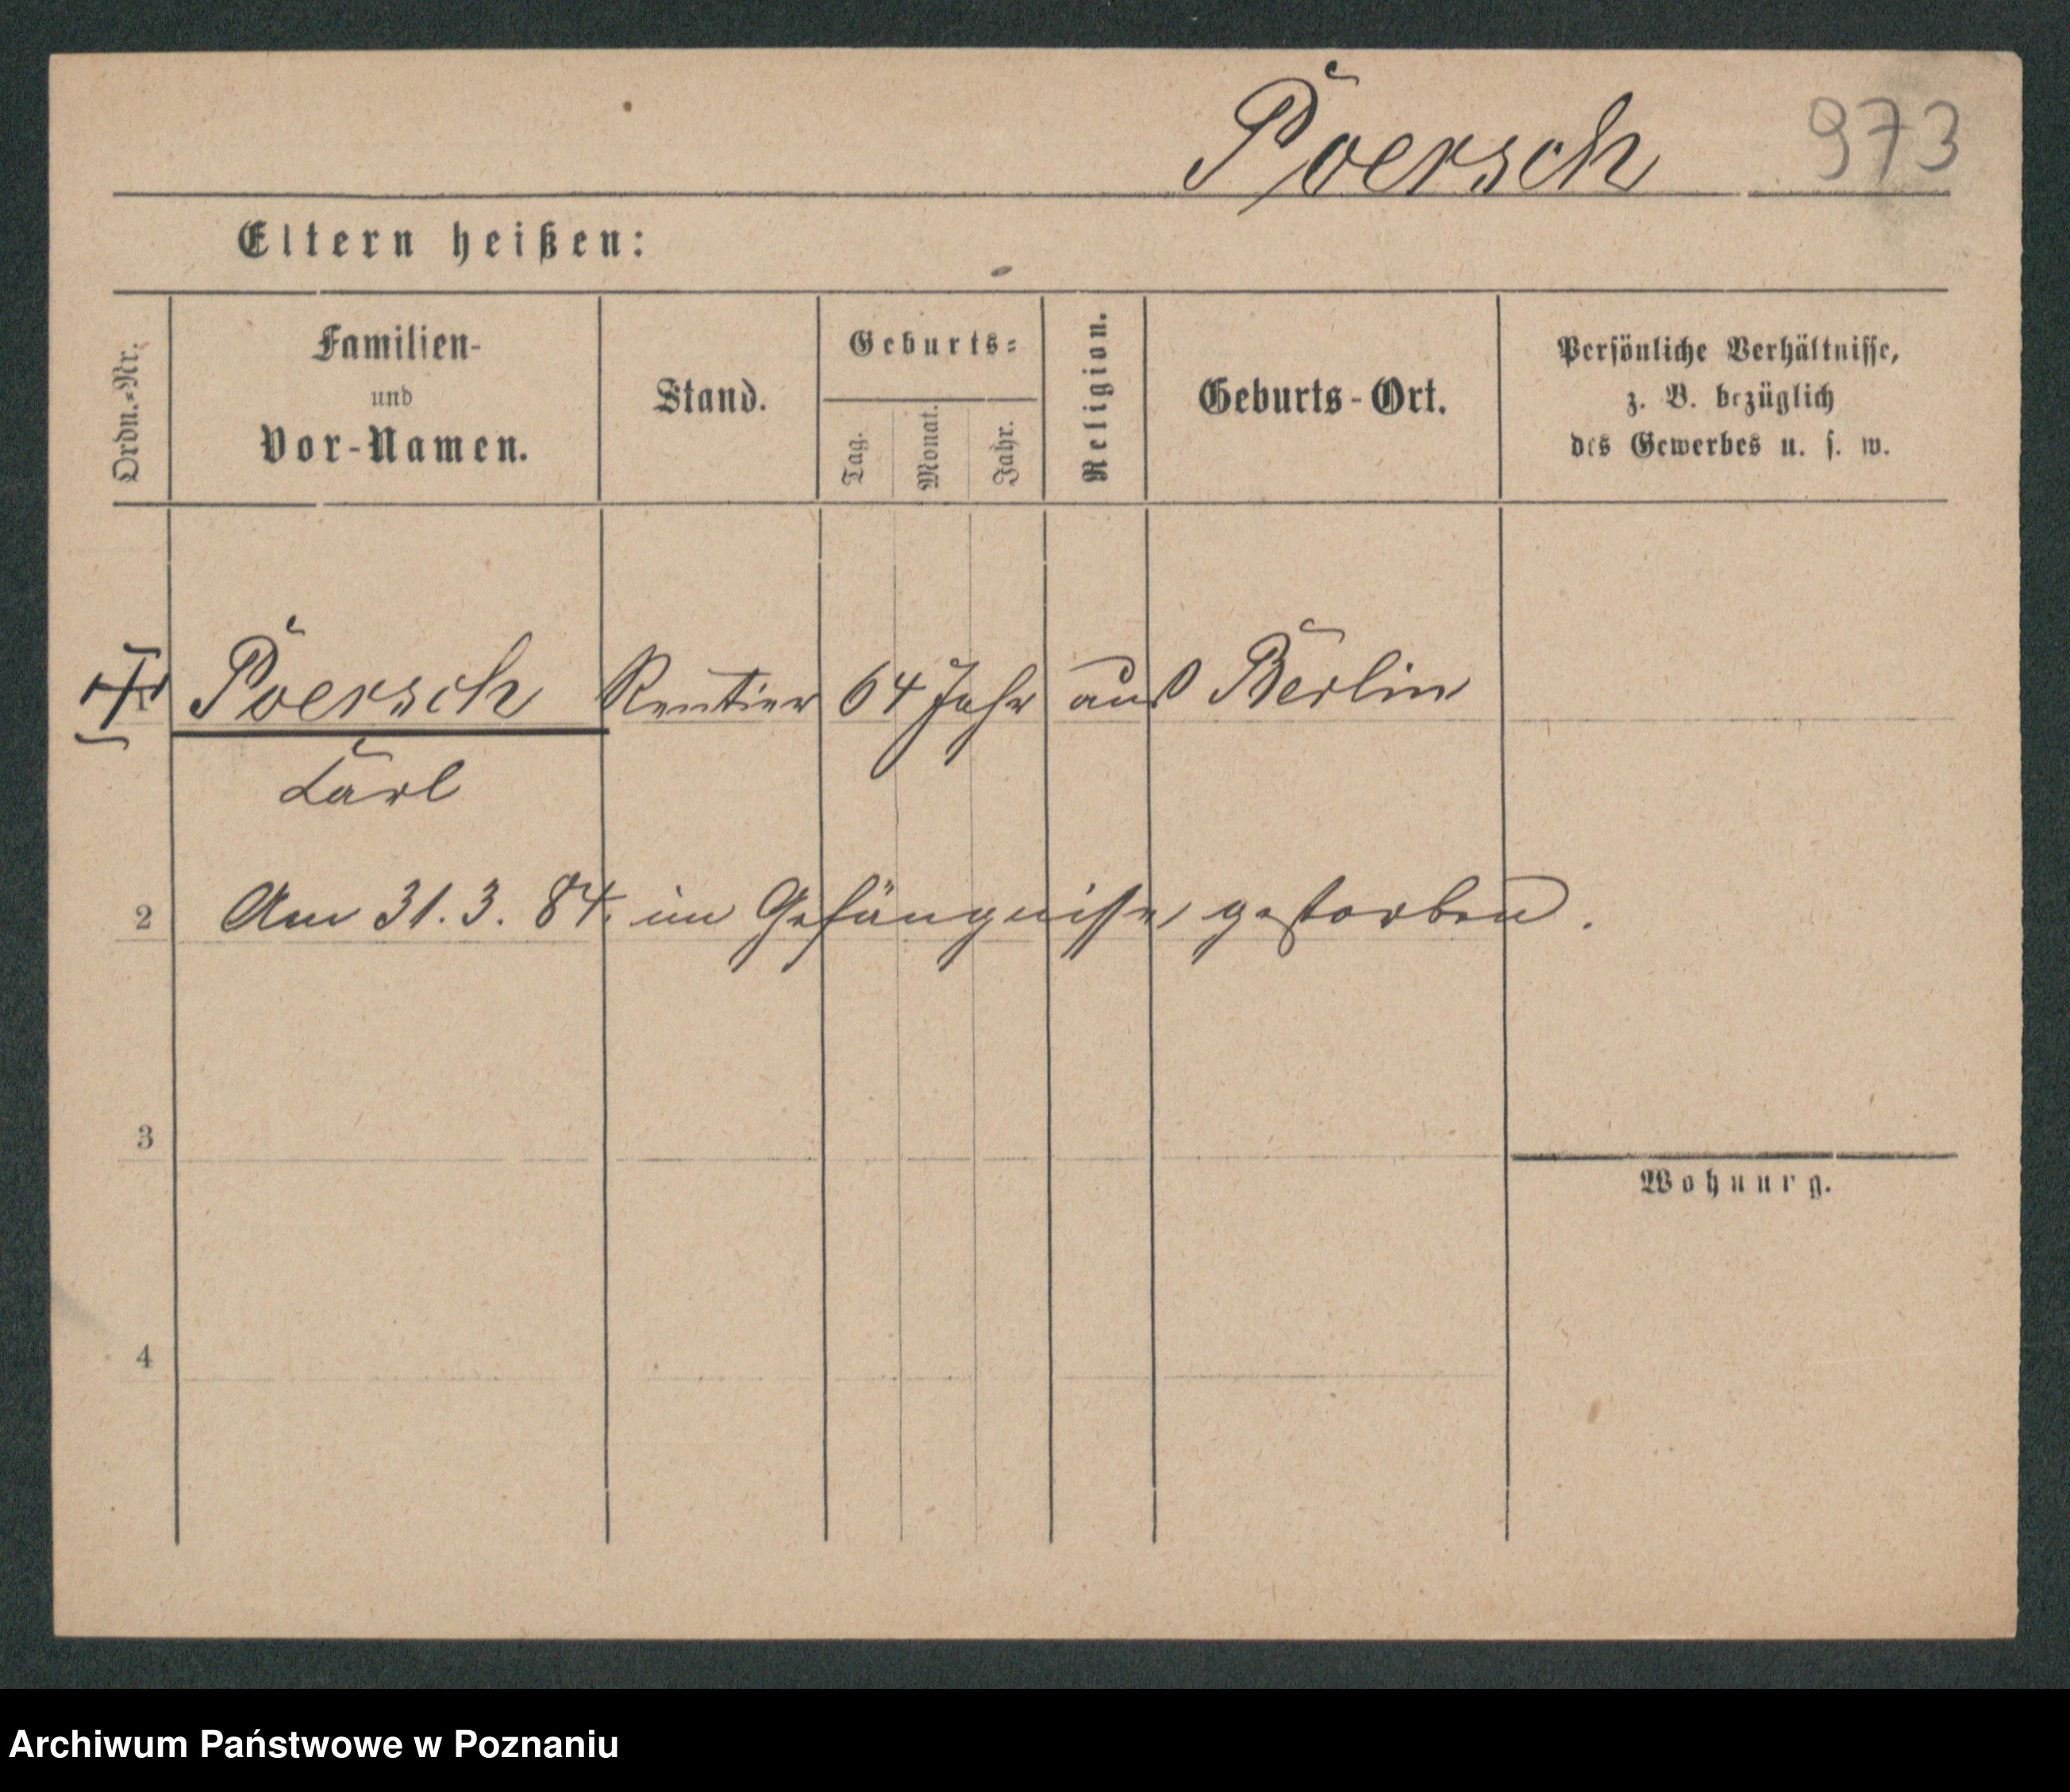 Poersch 973
Eltern heißen:
Ordn.-Nr.
Familien-
und
Vor-Namen.
Stand.
Geburts-
Tag.
Monat.
Jahr.
Religion.
Geburts-Ort.
Persönliche Verhältnisse,
z. B. bezüglich
des Gewerbes u. s. w.
Poersch Rentier 64 Jahr aus Berlin
Carl
2 Am 31. 3. 84. im Gefängnisse gestorben.
3
Wohnung.
4
Archiwum Państwowe w Poznaniu